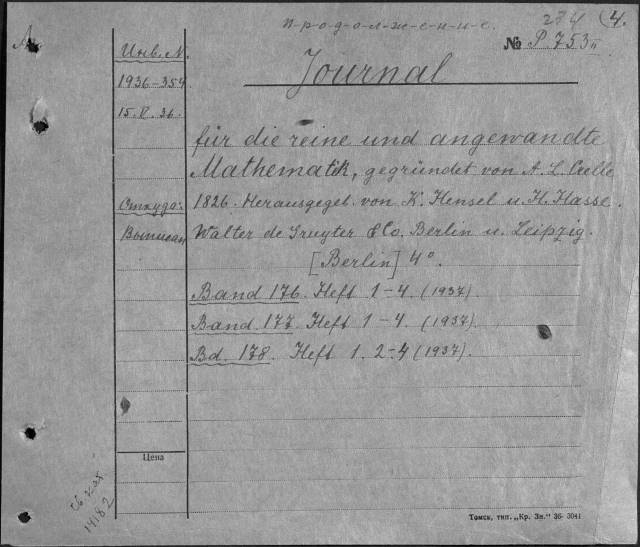 п-р-о-д-о-л-ж-е-н-и-е.
274 (4.
№ P.753 II
Journal
Инв. N.
1936-354
15.II.36.
für die reine und angewandte
Mathematik, gegründet von A. L. Crelle
Откуда: 1826. Herausgegeb. von K. Hensel u. H. Hasse.
Выписан Walter de Gruyter & Co. Berlin u. Leipzig.
[Berlin] 4°.
Band 176. Heft 1-4. (1937).
Band 177. Heft 1-4. (1937).
Bd. 178. Heft 1. 2-4 (1937).
Цена
14182
Томск, тип. „Кр. Зн." 36- 3041